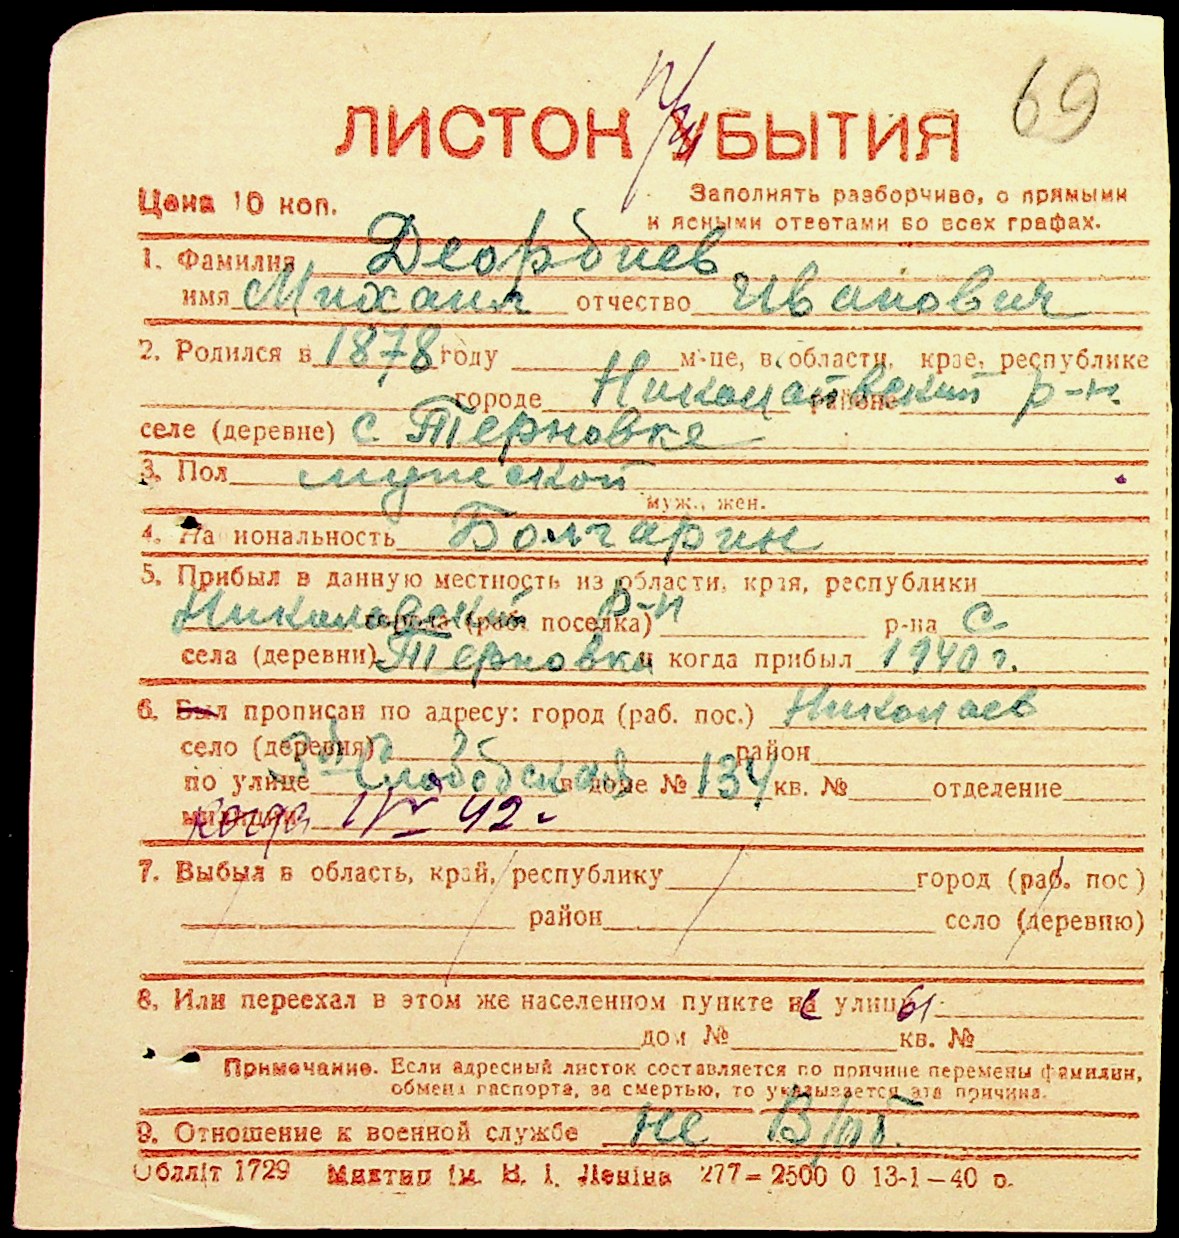 69
ЛИСТОК УБЫТИЯ
Цена 10 коп.
Заполнять разборчиво, с прямыми
и ясными ответами во всех графах.
1. Фамилия Деордиев
имя Михаил отчество Иванович
2. Родился в 1878 году м-це, в области, крае, республике
городе районе Николаевский р-н
селе (деревне) с Терновке
3. Пол мужской
муж., жен.
4. Национальность Болгарин
5. Прибыл в данную местность из области, края, республики
Николаевский р-н города (раб. поселка) р-на с.
села (деревни) Терновки и когда прибыл 1940 г.
6. Был прописан по адресу: город (раб. пос.) Николаев
село (деревня) район
по улице 3я Слободская в доме № 134 кв. № отделение
милиции когда 1/IV 42 г
7. Выбыл в область, край, республику город (раб. пос.)
район село (деревню)
8. Или переехал в этом же населенном пункте с улицы
дом № кв. №
Примечание. Если адресный листок составляется по причине перемены фамилии,
обмена паспорта, за смертью, то указывается эта причина.
9. Отношение к военной службе не в/об.
Обллiт 1729 ім. В. І. Леніна 277—2500 0 13-1—40 р.